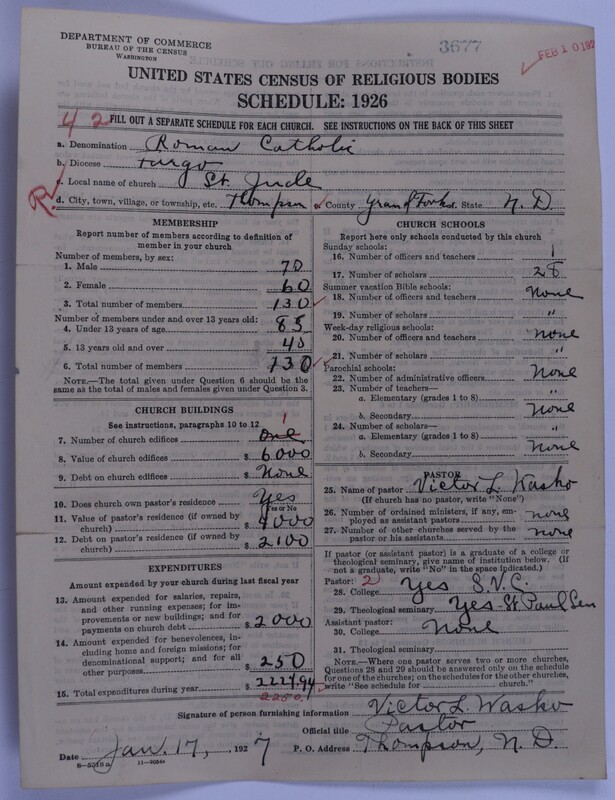 DEPARTMENT OF COMMERCE
BUREAU OF THE CENSUS
WASHINGTON
3677
FEB 10 192
UNITED STATES CENSUS OF RELIGIOUS BODIES
SCHEDULE: 1926
4 2 FILL OUT A SEPARATE SCHEDULE FOR EACH CHURCH. SEE INSTRUCTIONS ON THE BACK OF THIS SHEET
a. Denomination Roman Catholic
b. Diocese Fargo
c. Local name of church St. Jude
R
d. City, town, village, or township, etc. Thompson e. County Grand Forks f. State N. D.
MEMBERSHIP
Report number of members according to definition of
member in your church
Number of members, by sex:
1. Male 70
2. Female 60
3. Total number of members 130
Number of members under and over 13 years old:
4. Under 13 years of age 85
5. 13 years old and over 40
6. Total number of members 130
NOTE.—The total given under Question 6 should be the
same as the total of males and females given under Question 3.
CHURCH BUILDINGS
See instructions, paragraphs 10 to 12
7. Number of church edifices One 1
8. Value of church edifices $ 6000
9. Debt on church edifices $ None
10. Does church own pastor's residence Yes
Yes or No
11. Value of pastor's residence (if owned by
church) $ 4000
12. Debt on pastor's residence (if owned by
church) $ 2100
EXPENDITURES
Amount expended by your church during last fiscal year
13. Amount expended for salaries, repairs,
and other running expenses; for im-
provements or new buildings; and for
payments on church debt $ 2000
14. Amount expended for benevolences, in-
cluding home and foreign missions; for
denominational support; and for all
other purposes $ 250
15. Total expenditures during year $ 2227.94
2250.
CHURCH SCHOOLS
Report here only schools conducted by this church
Sunday schools:
16. Number of officers and teachers 1
17. Number of scholars 28
Summer vacation Bible schools:
18. Number of officers and teachers None
19. Number of scholars "
Week-day religious schools:
20. Number of officers and teachers None
21. Number of scholars "
Parochial schools:
22. Number of administrative officers None
23. Number of teachers—
a. Elementary (grades 1 to 8) "
b. Secondary None
24. Number of scholars—
a. Elementary (grades 1 to 8) "
b. Secondary None
PASTOR
25. Name of pastor Victor L. Wasko
(If church has no pastor, write "None")
26. Number of ordained ministers, if any, em-
ployed as assistant pastors none
27. Number of other churches served by the
pastor or his assistants none
If pastor (or assistant pastor) is a graduate of a college or
theological seminary, give name of institution below. (If
not a graduate, write "No" in the space indicated.)
Pastor: 2
28. College Yes S.V.C.
29. Theological seminary Yes - St Paul Sem
Assistant pastor:
30. College None
31. Theological seminary
NOTE.—Where one pastor serves two or more churches,
Questions 28 and 29 should be answered only on the schedule
for one of the churches; on the schedules for the other churches,
write "See schedule for church."
Signature of person furnishing information Victor L. Wasko
Official title Pastor
Date Jan. 17, , 1927 P. O. Address Thompson, N. D.